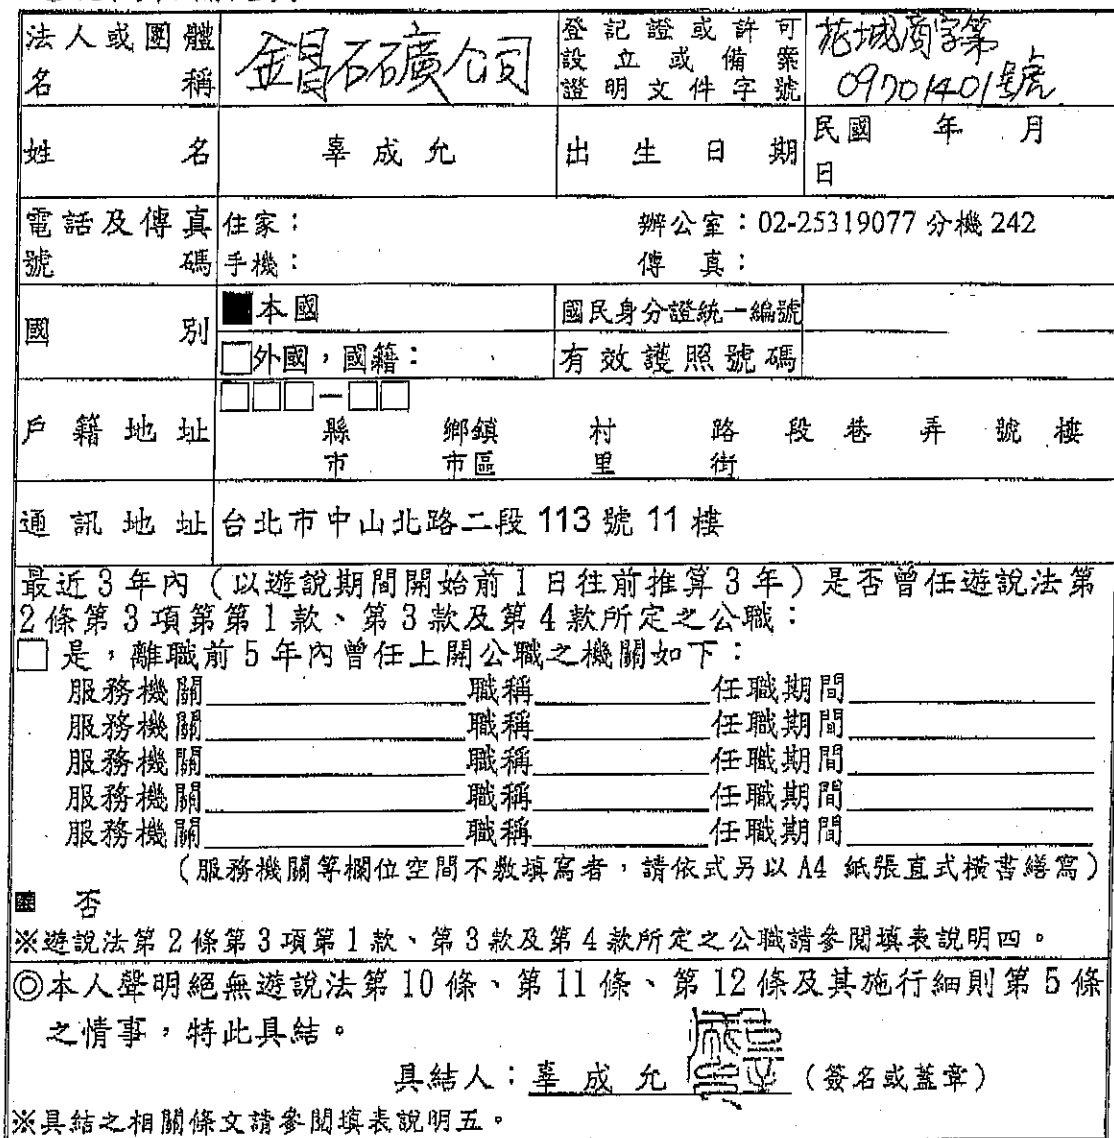 法人或團體名稱 金昌石礦公司 登記證或許可設立或備案證明文件字號 花城商字第09701401號
姓名 辜成允 出生日期 民國 年 月 日
電話及傳真號碼 住家： 辦公室：02-25319077 分機 242
手機： 傳真：
國別 ■本國 國民身分證統一編號
□外國，國籍： 有效護照號碼
戶籍地址 □□□－□□
縣 鄉鎮 村 路 段 巷 弄 號 樓
市 市區 里 街
通訊地址 台北市中山北路二段 113 號 11 樓
最近 3 年內（以遊說期間開始前 1 日往前推算 3 年）是否曾任遊說法第
2 條第 3 項第第 1 款、第 3 款及第 4 款所定之公職：
□ 是，離職前 5 年內曾任上開公職之機關如下：
服務機關 職稱 任職期間
服務機關 職稱 任職期間
服務機關 職稱 任職期間
服務機關 職稱 任職期間
服務機關 職稱 任職期間
（服務機關等欄位空間不敷填寫者，請依式另以 A4 紙張直式橫書繕寫）
■ 否
※遊說法第 2 條第 3 項第 1 款、第 3 款及第 4 款所定之公職請參閱填表說明四。
◎本人聲明絕無遊說法第 10 條、第 11 條、第 12 條及其施行細則第 5 條
之情事，特此具結。
具結人：辜成允 （簽名或蓋章）
※具結之相關條文請參閱填表說明五。